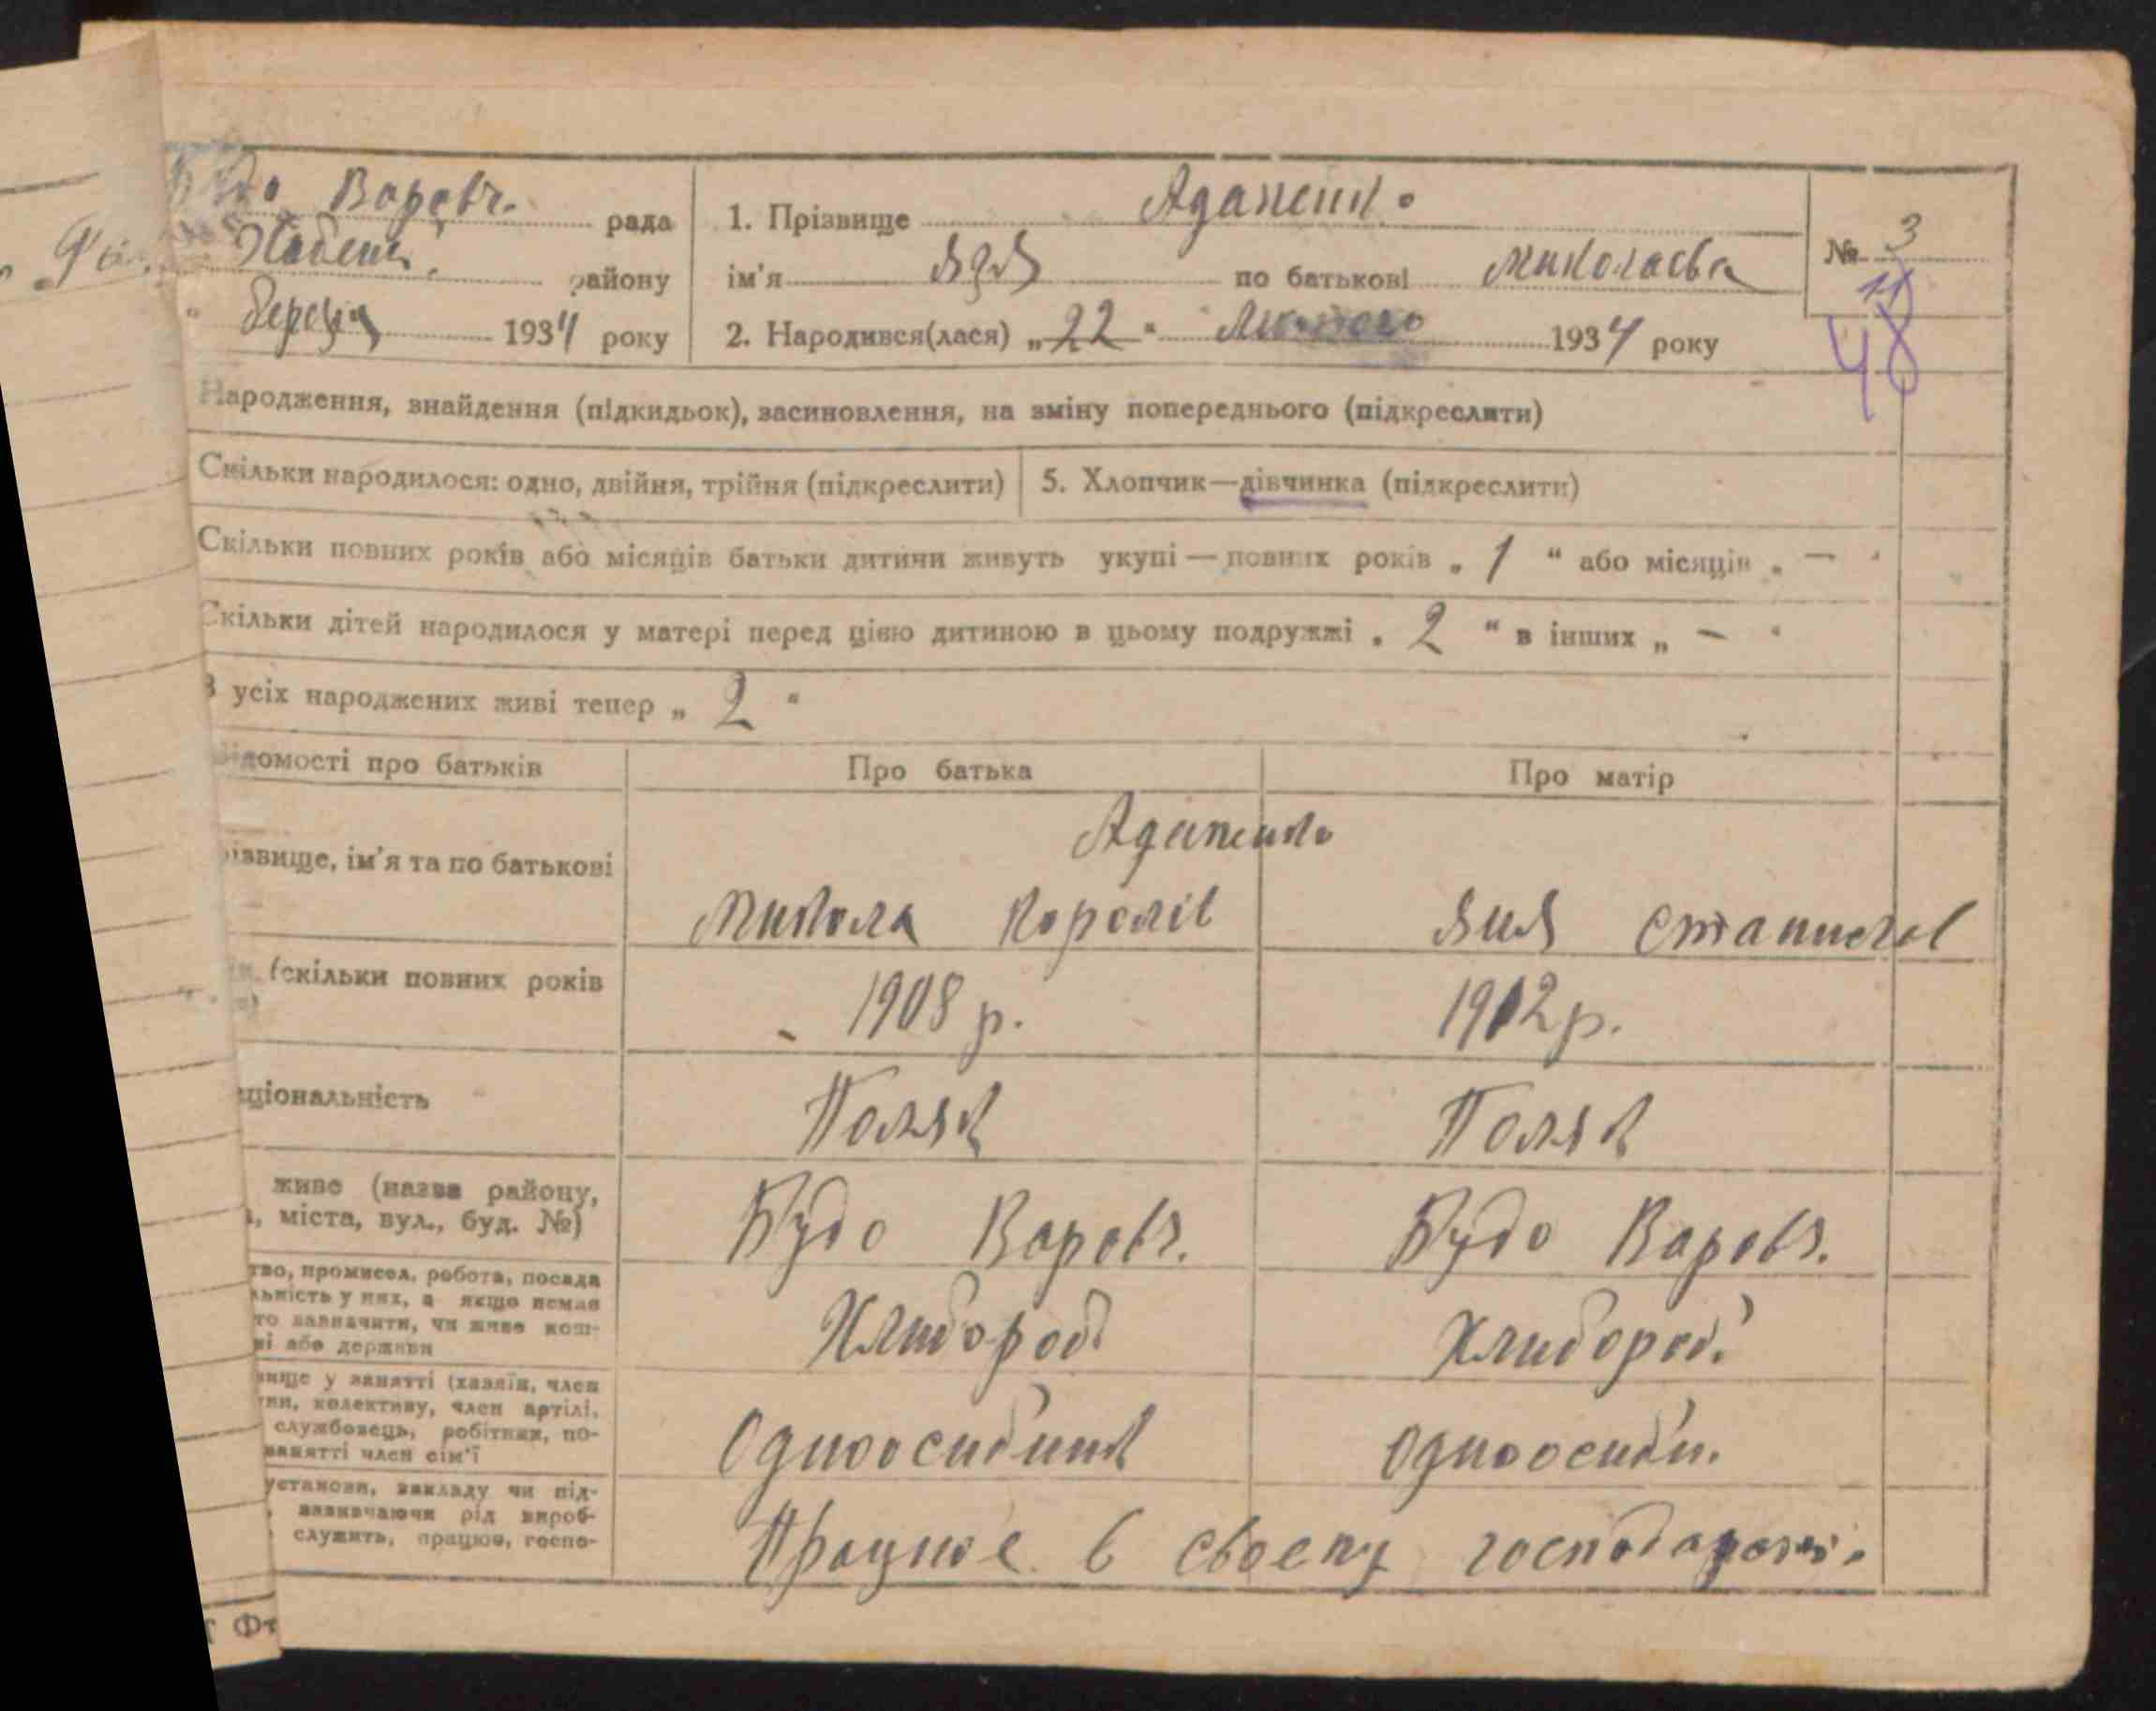 Воревч. рада
району
1934 року
1. Прізвище Адаменко
ім'я Ядя по батькові Миколаєва
2. Народився(лася) „22“ Лютого 1934 року
№ 3
11
48
Народження, знайдення (підкидьок), засиновлення, на зміну попереднього (підкреслити)
Скільки народилося: одно, двійня, трійня (підкреслити)
5. Хлопчик—дівчинка (підкреслити)
Скільки повних років або місяців батьки дитини живуть укупі — повних років „ 1 “ або місяців „ — “
Скільки дітей народилося у матері перед цією дитиною в цьому подружжі „ 2 “ в інших „ — “
З усіх народжених живі тепер „ 2 “
ідомості про батьків
Про батька
Про матір
різвище, ім'я та по батькові
Адаменко
Микола
Яня Станисл
(скільки повних років
1908 р.
1912 р.
ціональність
Поляк
Поляк
живе (назва району,
, міста, вул., буд. №)
Будо Воревч.
Будо Воревч.
тво, промисел, робота, посада
льність у них, а якщо немає
то зазначити, чи живе кош-
ні або держави
Хлибороб
Хлибороб.
вище у занятті (хазяїн, член
колективу, член артілі,
службовець, робітник, по-
занятті член сім'ї
Одноосибник
Одноосиби.
установи, закладу чи під-
зазначаючи рід вироб-
служить, працює, госпо-
Працює в своему господарстві.